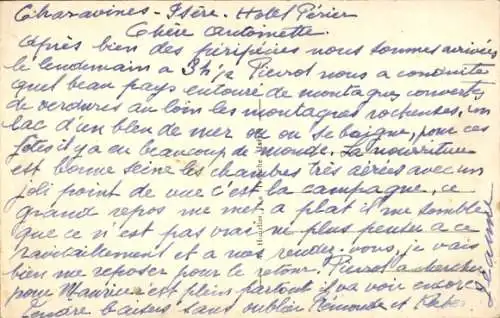 Charavines - Isère. Hotel Périer
Chère Antoinette.
Après bien des péripécies nous sommes arrivées
le lendemain a 3h ½ Pierrot nous a conduites
quel beau pays entouré de montagnes couvertes
de verdures au loin les montagnes rocheuses, un
lac d'un bleu de mer ou on se baigne, pour ces
fêtes il y a eu beaucoup de monde. La nourriture
est bonne seine les chambres très aérées avec un
joli point de vue c'est la campagne, ce
grand repos me met a plat il me semble
que ce n'est pas vrai ne plus penser a ce
ravitaillement et a nos rendez-vous, je vais
bien me reposer pour le retour. Pierrot a chercher
pour Maurice c'est plein partout il va voir encore
Tendre baisers sans oublier Rémonde et
Jeanne